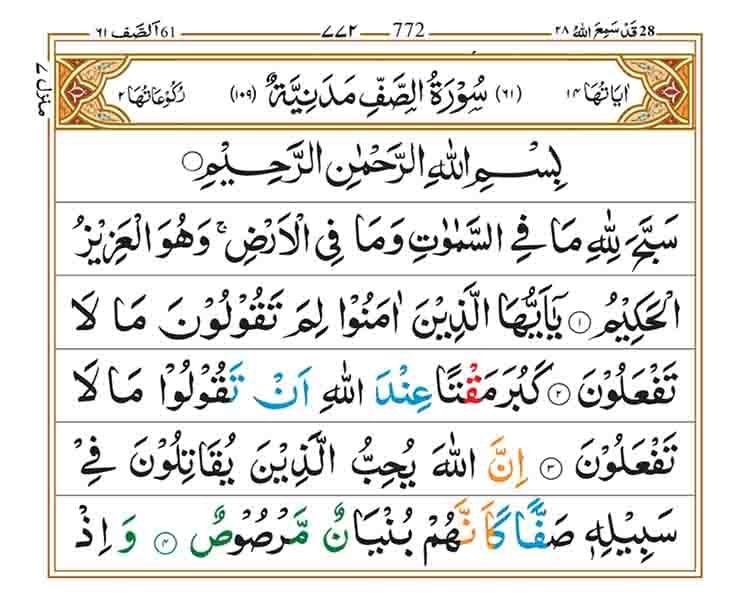 28 قَدْ سَمِعَ اللهُ ٢٨ 772 ٧٧٢ 61 اَلصَّف ٦١
منزل ٧
اٰيَاتُهَا ١٤ (٦١) سُوْرَةُ الصَّفِّ مَدَنِيَّةٌ (١٠٩) رُكُوْعَاتُهَا ٢
بِسْمِ اللهِ الرَّحْمٰنِ الرَّحِيْمِ○
سَبَّحَ لِلّٰهِ مَا فِي السَّمٰوٰتِ وَمَا فِي الْاَرْضِ ۚ وَهُوَ الْعَزِيْزُ
الْحَكِيْمُ ۝١ يٰۤاَيُّهَا الَّذِيْنَ اٰمَنُوْا لِمَ تَقُوْلُوْنَ مَا لَا
تَفْعَلُوْنَ ۝٢ كَبُرَ مَقْتًا عِنْدَ اللهِ اَنْ تَقُوْلُوْا مَا لَا
تَفْعَلُوْنَ ۝٣ اِنَّ اللهَ يُحِبُّ الَّذِيْنَ يُقَاتِلُوْنَ فِيْ
سَبِيْلِهٖ صَفًّا كَاَنَّهُمْ بُنْيَانٌ مَّرْصُوْصٌ ۝٤ وَ اِذْ